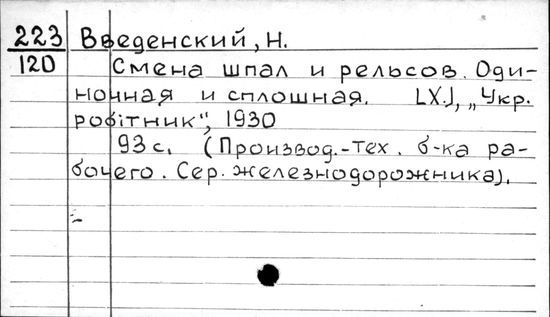 223 Введенский, Н.
120 Смена шпал и рельсов. Оди-
ночная и сплошная. [Х.], „Укр.
робітник", 1930
93 с. (Производ.-тех. б-ка ра-
бочего. Сер. железнодорожника).